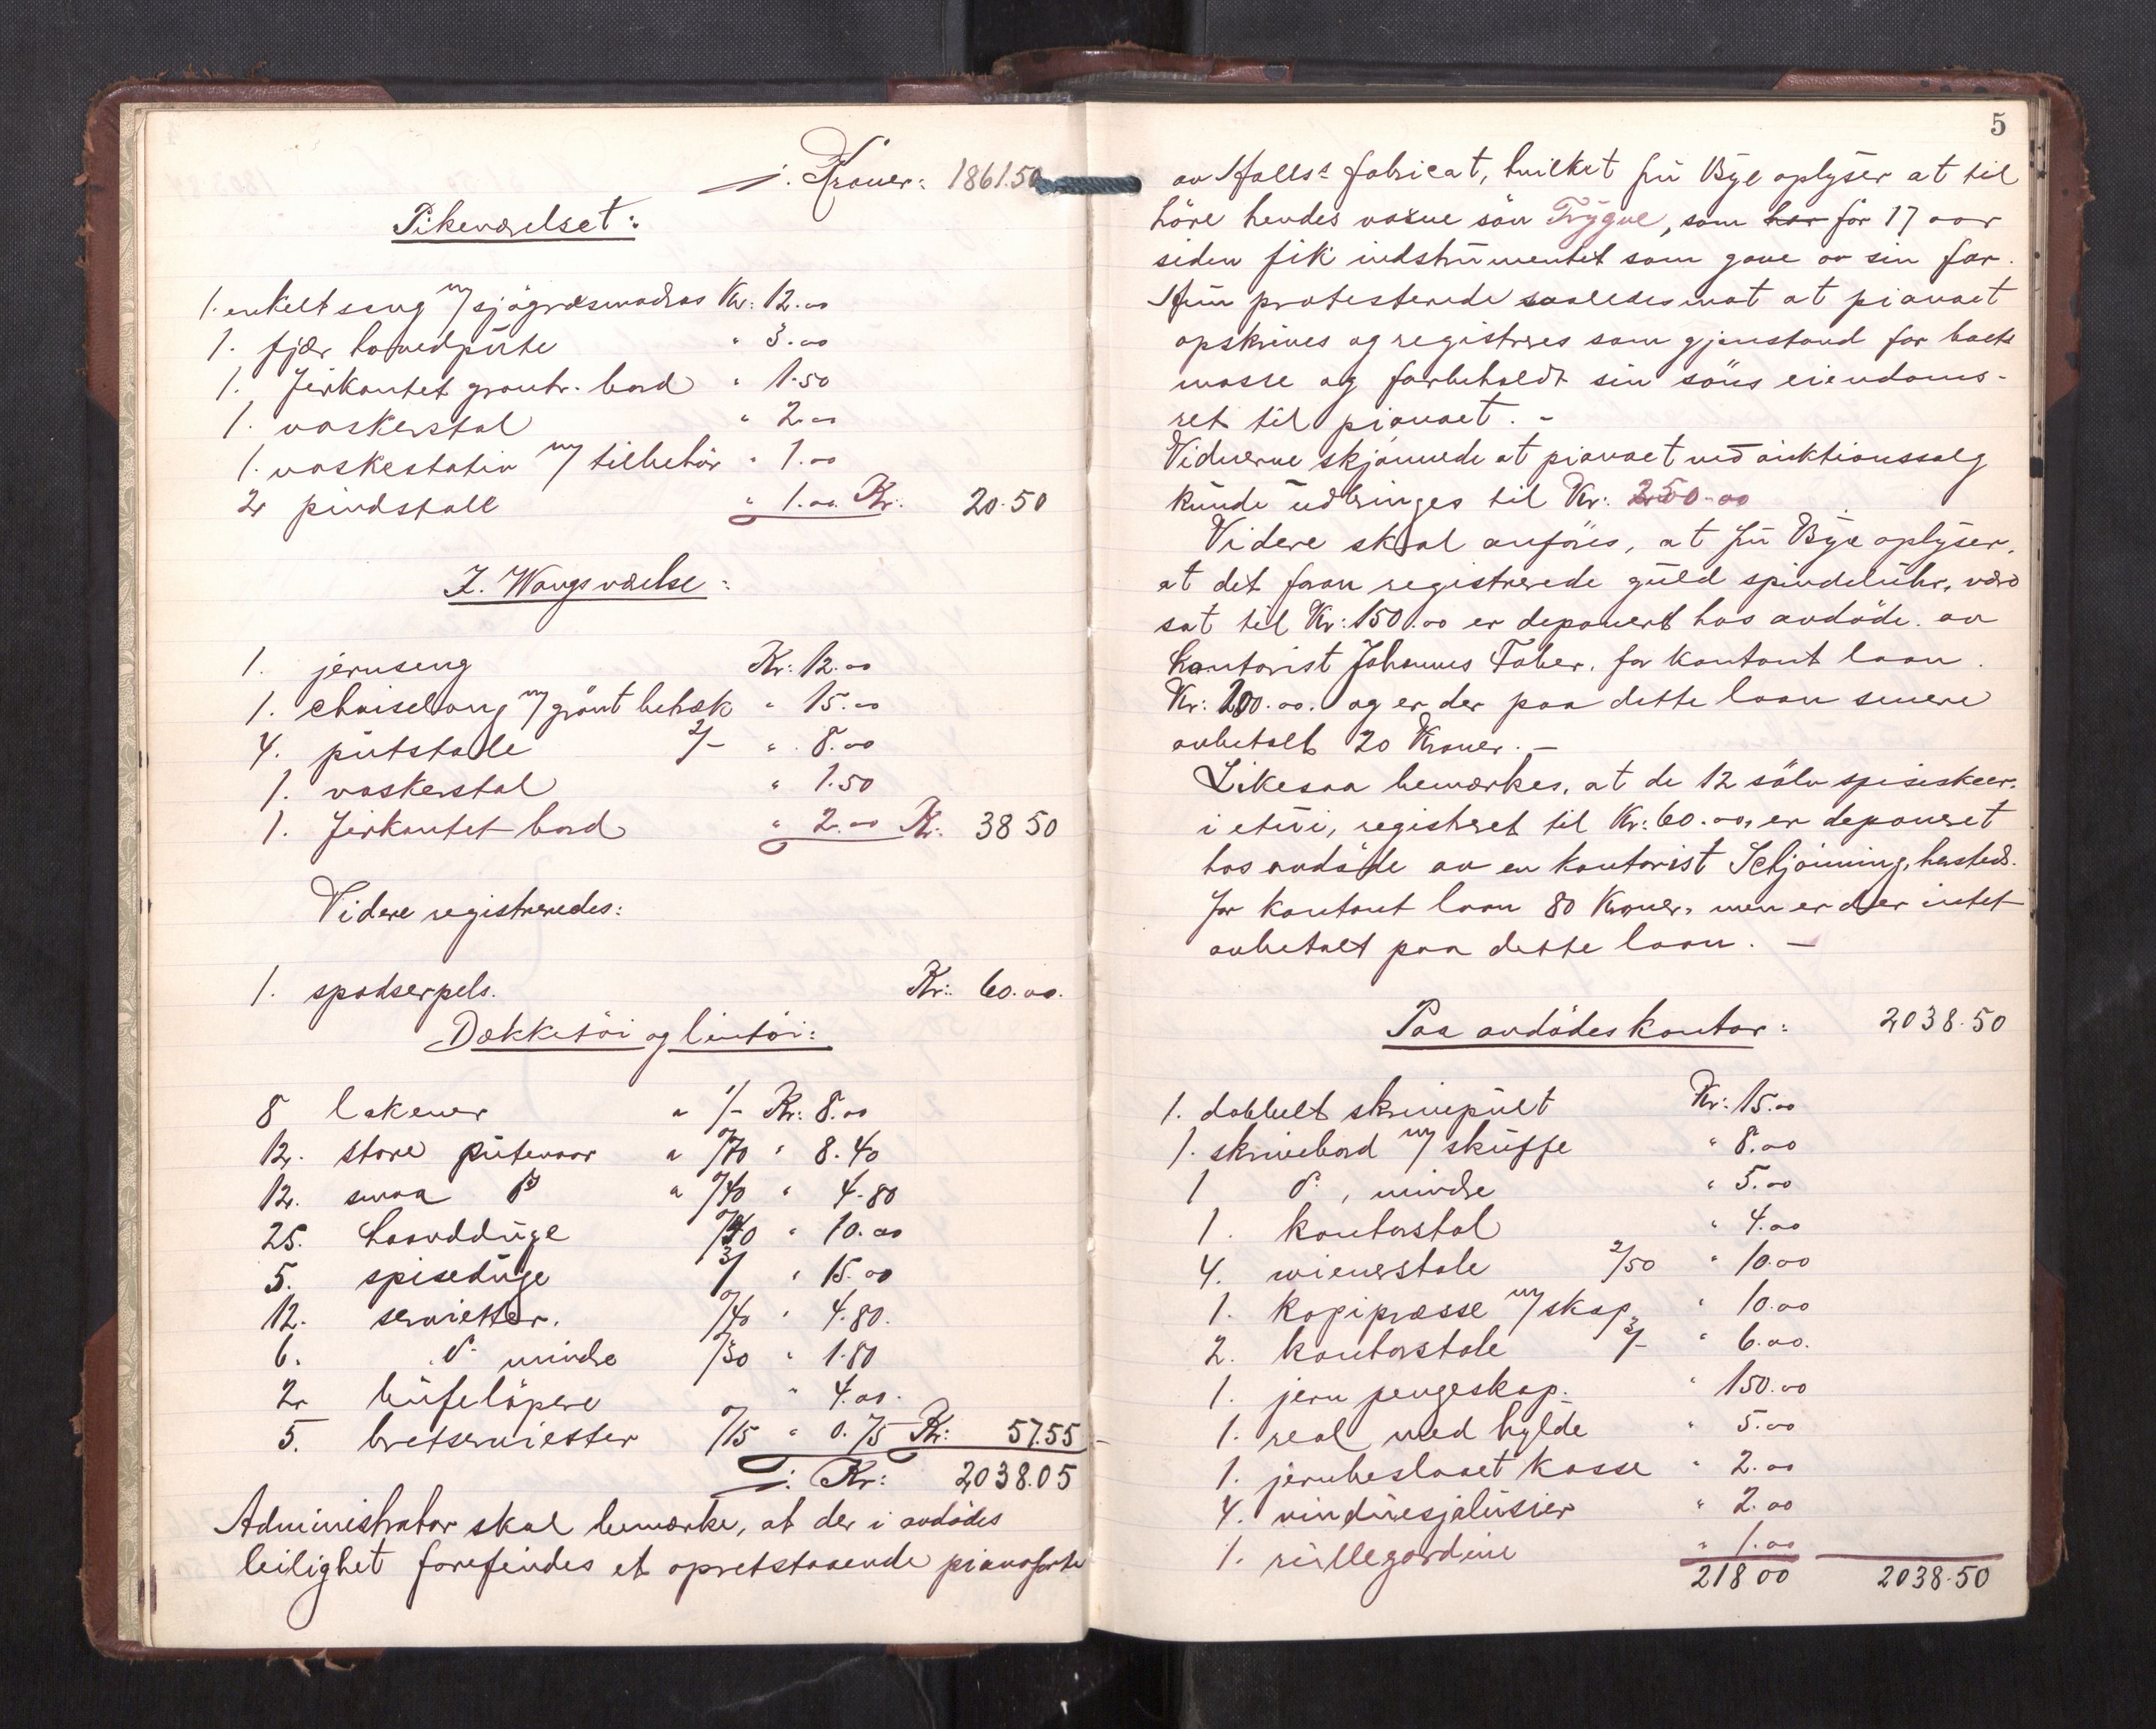 ÷ Kroner: 1861.50
Pikeværelset:
1. enkelt seng m/ sjøgræsmadras Kr: 12.00
1. fjær hovedpüte " 3.00
1. firkantet grantr. bord " 1.50
1. vaskerstol " 2.00
1. vaskestativ m/ tilbehör " 1.00
2 pindstole " 1.00 Kr. 20.50
Z. Wangs værelse:
1. jernseng Kr: 12.00
1. chaiselong m/ grönt betræk " 15.00
4. pütstole 2/- " 8.00
1. vaskerstol " 1.50
1. firkantet bord " 2.00 Kr. 38 50
Videre registreredes:
1. spadserpels. Kr: 60.00.
Dækketöi og lintöi:
8 lakener a 1/- Kr: 8.00
12. store pütevaar a 0/70 " 8.40
12. smaa do a 0/40 " 4.80
25. haandduge 0/40 " 10.00
5. spiseduge 3/ " 15.00
12. servietter. 0/40 " 4.80.
6. do mindre 0/30 " 1.80
2 büfelöpere " 4.00.
5. bretservietter 0/15 " 0.75 Kr: 57.55
÷ Kr: 2038.05
Administrator skal bemærke, at der i avdödes
leilighet forefindes et opretstaaende pianoforte
5
av Halls fabricat, hvilket frü Bye oplyser at til
höre hendes voxne sön Trygve, som har for 17 aar
siden fik indstrümentet som gave av sin far.
Hün protesterede saaledes mot at pianoet
opskrives og registreres som gjenstand for boets
masse og forbeholdt sin söns eiendoms-
ret til pianoet. -
Vidnerne skjönnede at pianoet ved auktionssalg
künde üdbringes til Kr: 250.00
Videre skal anföres, at frü Bye oplyser,
at det foran registrerede güld spindelühr, værd
sat til Kr: 150.00 er deponert hos avdöde av
kontorist Johannes Faber, for kontant laan.
Kr: 200.00. og er der paa dette laan senere
avbetalt 20 Kroner. -
Likesaa bemærkes, at de 12 sölv spiseskeer,
i etüi, registreret til Kr: 60.00, er deponeret
hos avdöde av en kontorist Schjönning, hersteds.
for kontant laan 80 Kroner, men er der intet
avbetalt paa dette laan. -
Paa avdödes kontor: 2038.50
1. dobbelt skrivepült Kr: 15.00
1. skrivebord m/ sküffe " 8.00
1 do, mindre " 5.00
1. kontorstol " 4.00
4. wienerstole 2/50 " 10.00
1. kopipresse m/ skap " 10.00
2. kontorstole 3/- " 6.00.
1. jern pengeskap. " 150.00
1. reol med hylde " 5.00
1. jernbeslaaet kasse " 2.00
4. vindüesjalüsier " 2.00
1. rüllegardine " 1.00
218 00 2038.50